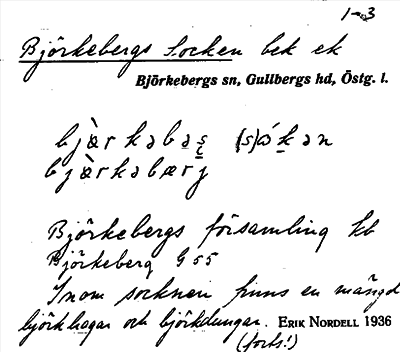 1-3
Björkebergs Socken bek ek
Björkebergs sn, Gullbergs hd, Östg. l.
bjærkəbas̨ (s)ókən
bjærkəbærj
Björkebergs församling kb
Björkeberg G 55
Inom socknen finns en mängd
björkhagar och björkdungar. ERIK NORDELL 1936
(forts!)